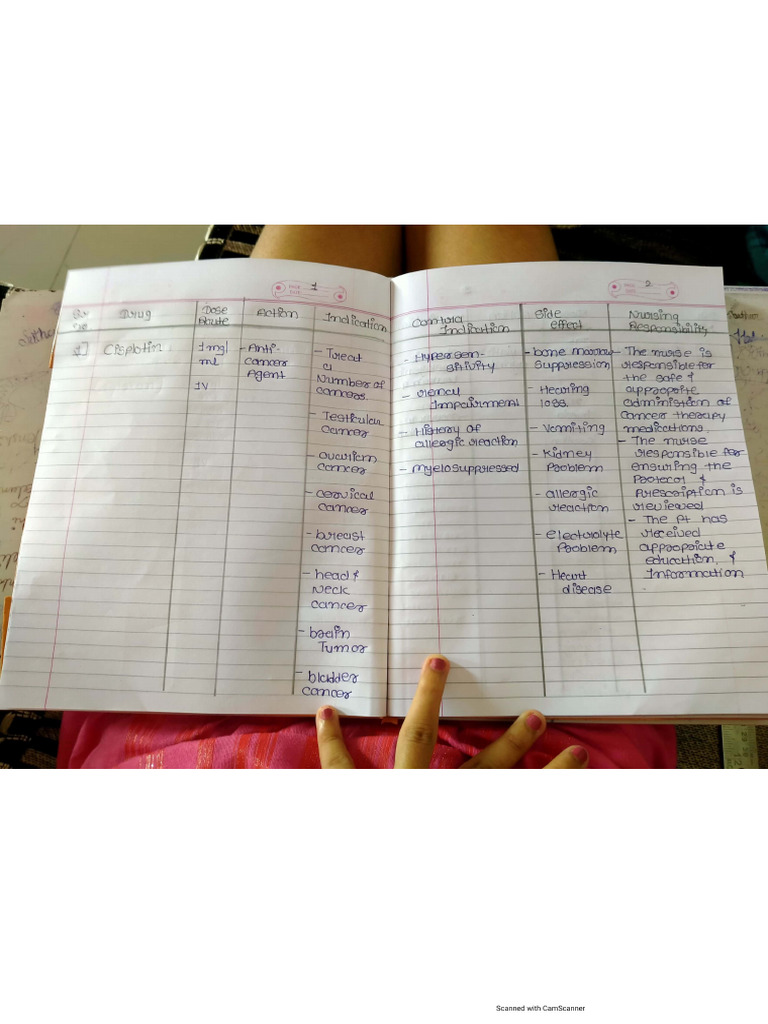 1
Sr no
Drug
Dose
Route
Action
Indication
1]
Cisplatin
1mg/
ml
IV
- Anti-
cancer
Agent
- Treat
a
Number of
cancers.
- Testicular
cancer
- ovarian
cancer
- cervical
cancer
- breast
cancer
- head &
Neck
cancer
- brain
Tumor
- bladder
cancer
2
Contra
Indication
Side
effect
Nursing
Responsibility
- Hypersen-
sitivity
- renal
Impairment
- History of
allergic reaction
- myelosuppressed
- bone marrow
Suppression
- Hearing
loss.
- Vomiting
- Kidney
Problem
- allergic
reaction
- electrolyte
Problem
- Heart
disease
- The nurse is
responsible for
the safe &
administration of
cancer therapy
medications.
- The nurse
responsible for
ensuring the
Protocol &
Prescription is
reviewed
- The Pt has
received
appropriate
education, &
Information
Scanned with CamScanner